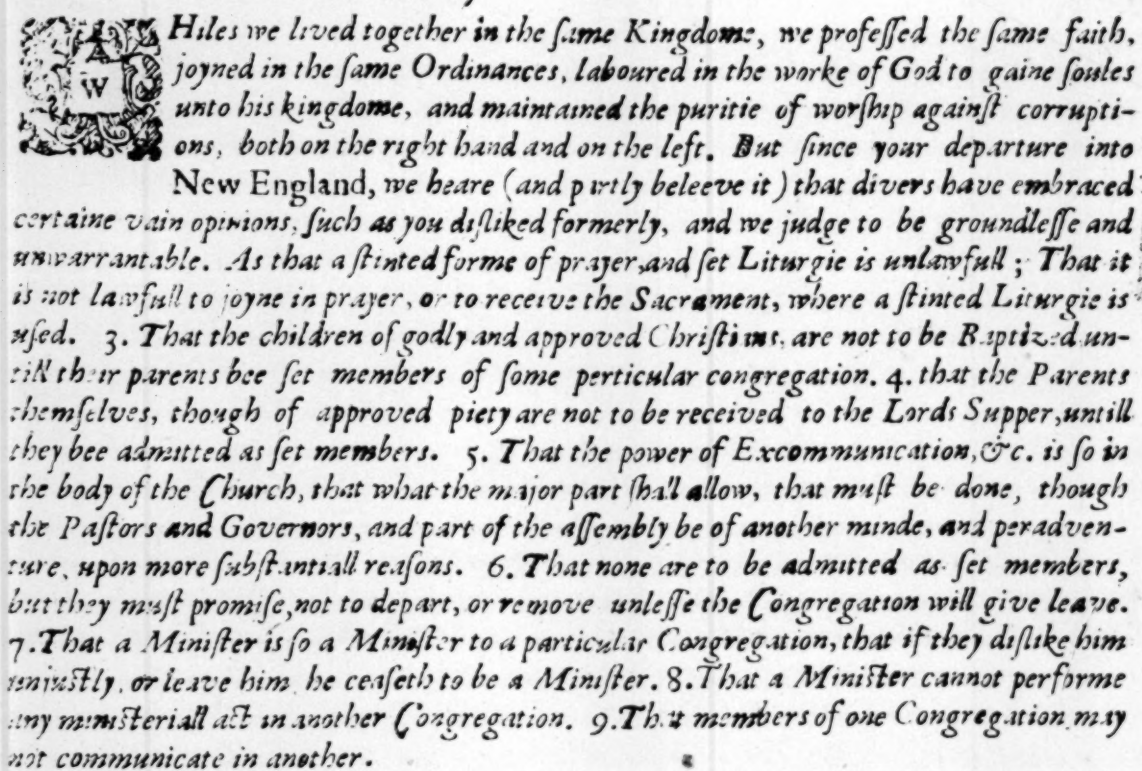 WHiles we lived together in the ſame Kingdome, we profeſſed the ſame faith,
joyned in the ſame Ordinances, laboured in the worke of God to gaine ſoules
unto his kingdome, and maintained the puritie of worſhip againſt corrupti-
ons, both on the right hand and on the left. But ſince your departure into
New England, we heare (and partly beleeve it) that divers have embraced
certaine vain opinions, ſuch as you diſliked formerly, and we judge to be groundleſſe and
unwarrantable. As that a ſtinted forme of prayer, and ſet Liturgie is unlawfull; That it
is not lawfull to joyne in prayer, or to receive the Sacrament, where a ſtinted Liturgie is
uſed. 3. That the children of godly and approved Chriſtians, are not to be Baptized, un-
till their parents bee ſet members of ſome perticular congregation. 4. that the Parents
themſelves, though of approved piety are not to be received to the Lords Supper, untill
they bee admitted as ſet members. 5. That the power of Excommunication, &c. is ſo in
the body of the Church, that what the major part ſhall allow, that muſt be done, though
the Paſtors and Governors, and part of the aſſembly be of another minde, and peradven-
ture, upon more ſubſtantiall reaſons. 6. That none are to be admitted as ſet members,
but they muſt promiſe, not to depart, or remove unleſſe the Congregation will give leave.
7. That a Miniſter is ſo a Miniſter to a particular Congregation, that if they diſlike him
unjuſtly, or leave him, he ceaſeth to be a Miniſter. 8. That a Miniſter cannot performe
any miniſteriall act in another Congregation. 9. That members of one Congregation may
not communicate in another.